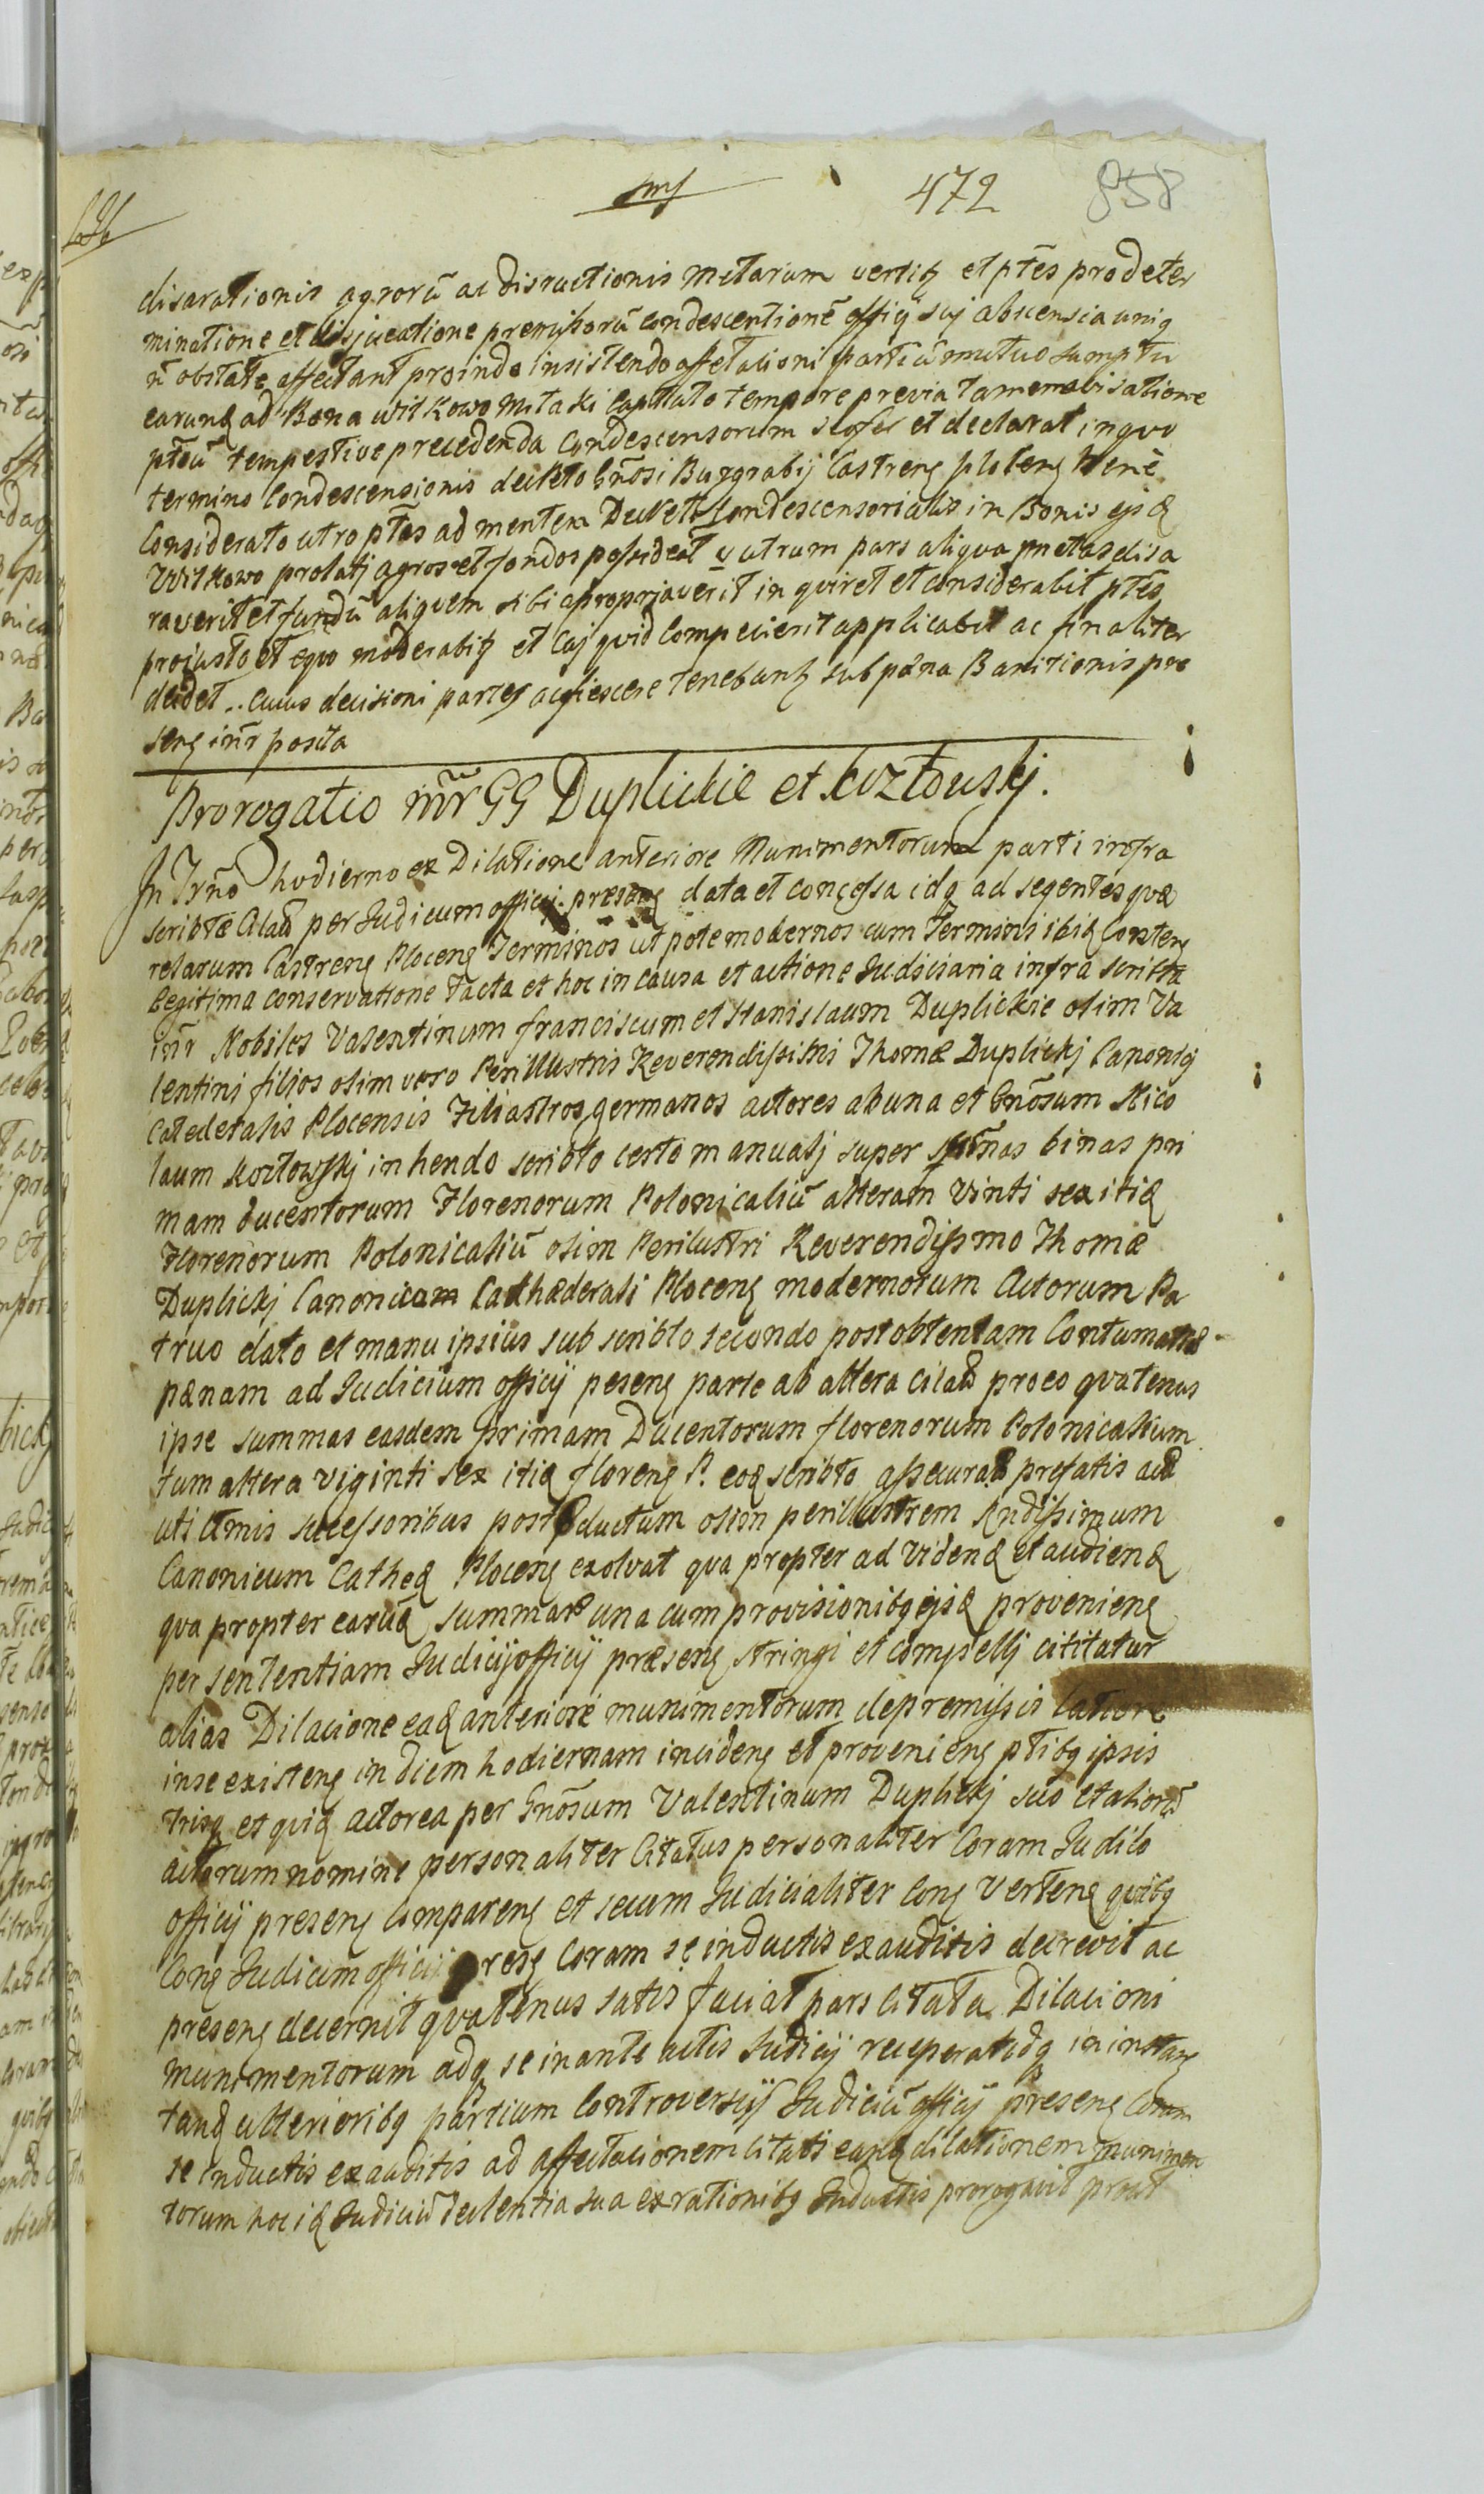 472 858
disarationis agrorū ac disructionis metarum vertitz et ptēs pro deter
minatione et disjucatione premissorū condescentionē officij suj absensia uniq
n̄ obstate affectant proinde insistendo affetationi partiū mutuo sumptu
earunq ad Bona Witkowo Mitaki Captato tempore previa tamen obisatione
ptēū tempestive precedenda Condescensorum se ofer et declarat in quo
termino Condescensionis decreto Gn̄osi Burgrabij Castreng ploceng bene
Considerato utro ptēs ad mentem Decreti Condescensorialis in Bonis ejsq
Witkowo prolatj agros et fundos possideat v utrum pars aliqua metas disa
raverit et fundū aliquem sibi apropriaverit in quiret et considerabit ptēs
pro justo et equo moderabitz et Cuj quid Compecierit applicabit ac finaliter
decidet .. cuius decisioni partes acquiescere tenebuntz sub pæna Banitionis pre
seng in̄r posita
Prorogatio in̄r GG Duplickie et Kozłowskj.
In Trn̄o hodierno ex Dilatione anteriore Munimentorum parti infra
scribtæ Citatæ per Judicium officij preseng data et concessa idq ad segentes quæ
relarum Castreng Ploceng Terminos ut pote modernos cum Terminis ibiq Conserv
Legitima conservatione facta et hoc in causa et actione Judiciaria infra scribta
in̄r Nobiles Valentinum franciscum et Stanislaum Duplickie olim Va
lentini filios olim vero Perillustris Reverendissimi Thomæ Duplickj Canonicj
Catedetalis Plocensis Filiastros germanos actores ab una et Gn̄osum Nico
laum Kozłowskj inhendo scribto certo manualj super sum̄as binas pri
mam ducentorum Florenorum Polonicaliū alteram vinti sex itiq
Florenorum Polonicaliū olim Perilustri Reverendissmo Thomæ
Duplickj Canonicam Cathæderali Ploceng modernorum Actorum Pa
truo dato et manu ipsius sub scribto secundo post obtentam Contumatiæ
pænam ad Judicium officij peseng parte ab altera citatū pro eo quatenus
ipse summas easdem primam Ducentorum florenorum Polonicalium
tum altera viginti sex itiq floreng P. eoq scribto assecuratas prefatis actū
uti Itmis sucessoribus post eductum olim perillustrem Rndissimum
Canonicum Catheq Ploceng exolvat qua propter ad videnq et audienq
qua propter earūq summarū una cum provisionibq ejsq provenieng
per sententiam Judicij officij præseng stringi et compellj cititatur
alias Dilacione eaq anteriore munimentorum de premissis latiore
in se existeng in diem hodiernam incideng et provenieng ptibq ipsis
trisq et quiq actorea per Gn̄osum Valentinum Duplickj suo et aliorū
actorum nomine personaliter Citatus personaliter Coram Judicio
officij preseng compareng et secum Judicialiter Cong verteng quibq
Cong Judicium officij preseg Coram se inductis exauditis decrevit ac
preseng decernit quatenus satis faciat pars citata Dilacioni
munimentorum adq se in ante actis Judicij recuperat idq in instang
tanq ulterioribq partium Controversijs Judiciū officij preseng Coram
se inductis exauditis ad affectacionem citati eanq dilationem munimen
torum hoc iq Judiciū declentia sua ex rationibq Inductis prorogavit prout